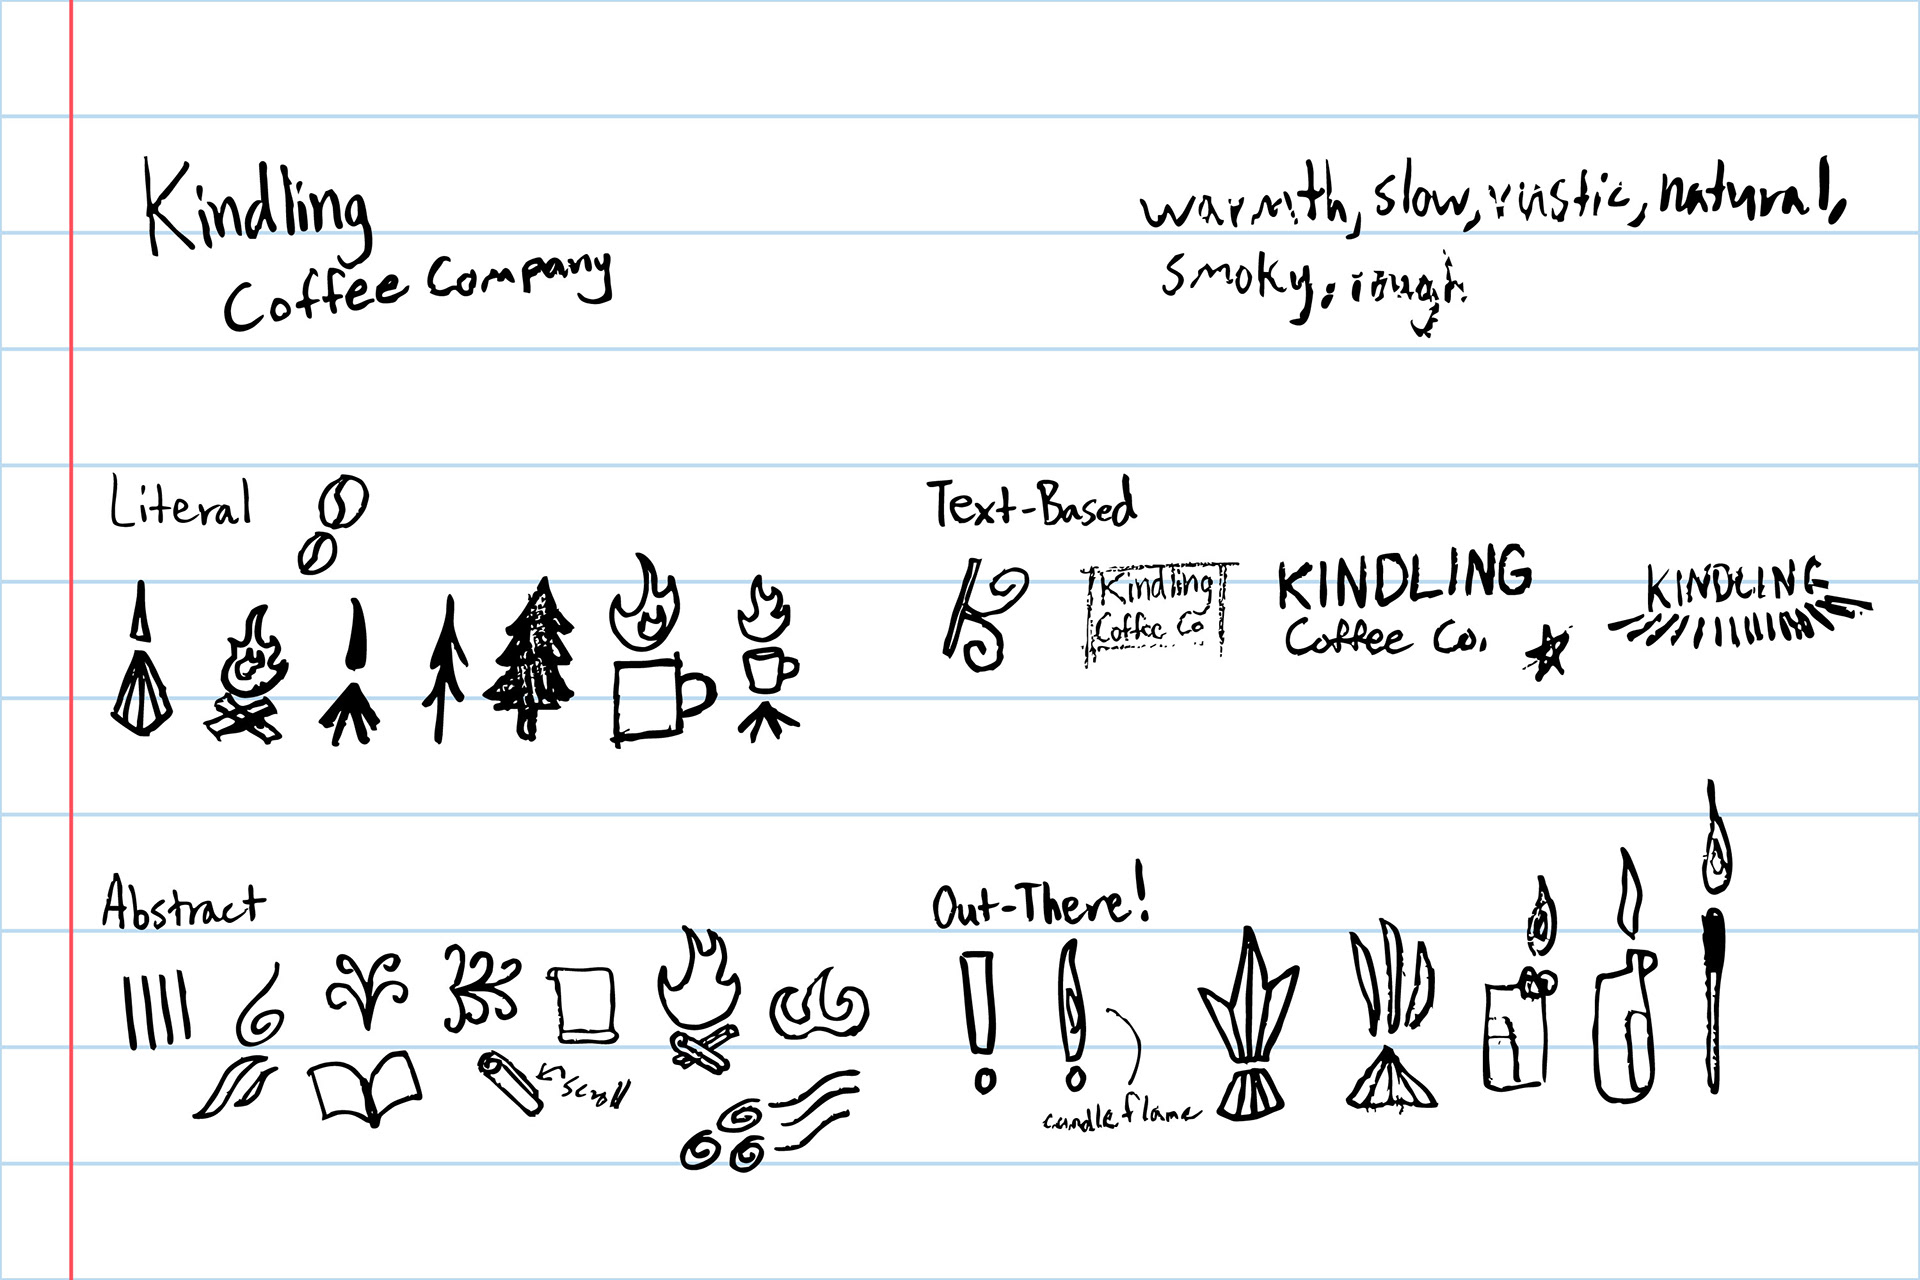 Kindling
Coffee Company
warmth, slow, rustic, natural,
smoky,
Literal
Text-Based
K
Kindling
Coffee Co
KINDLING
Coffee Co.
KINDLING
Abstract
scroll
Out-There!
candle flame